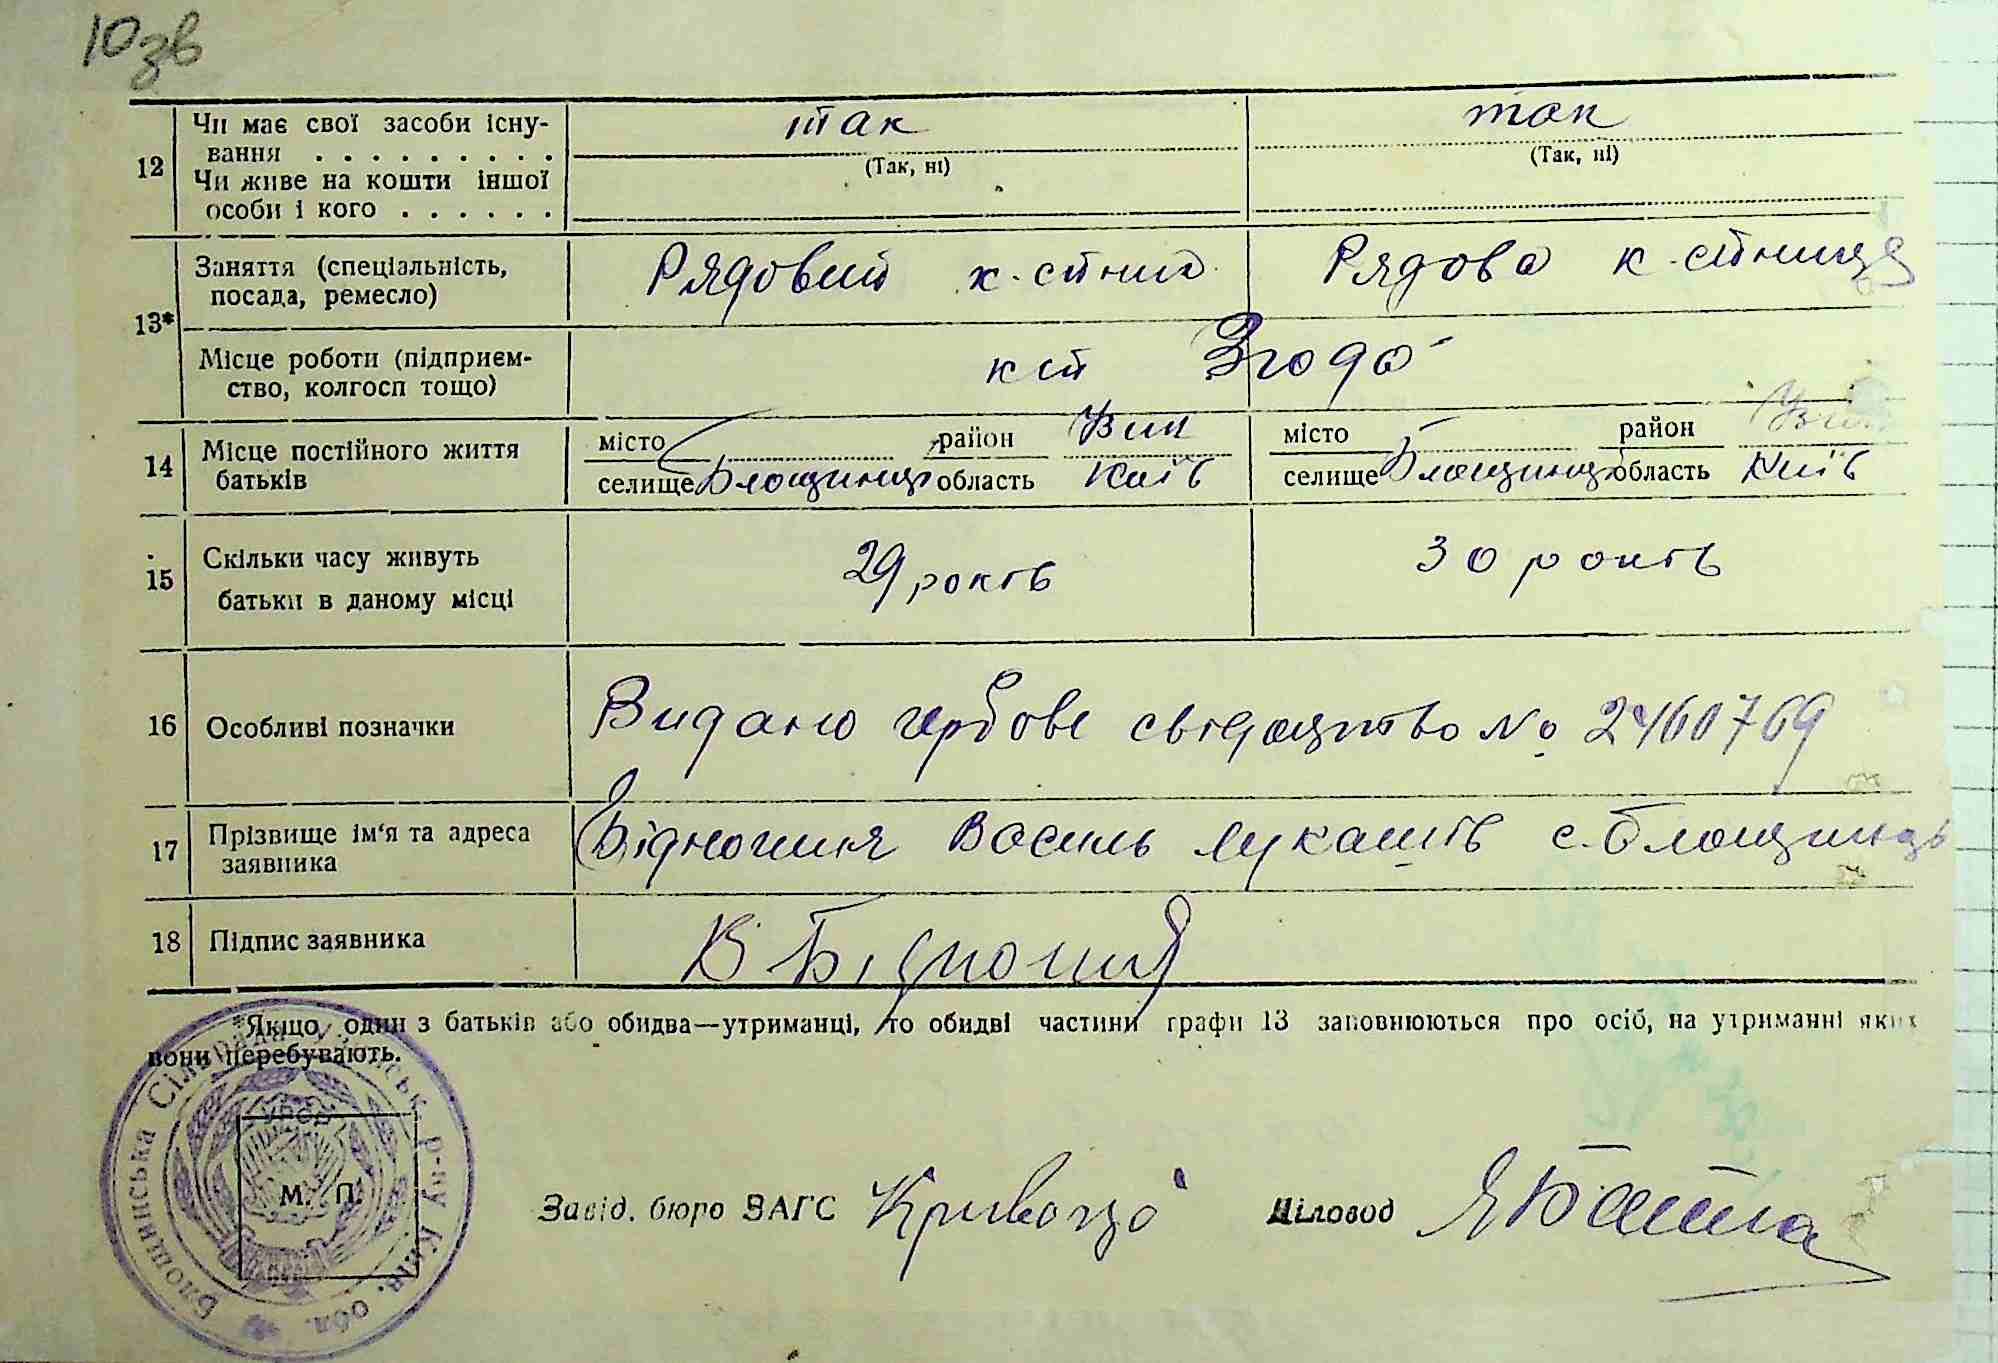 10зв
12 Чи має свої засоби існу- так так
вання . . . . . . . . . (Так, ні) (Так, ні)
Чи живе на кошти іншої
особи і кого . . . . . .
13* Заняття (спеціальність, Рядовий к-стник Рядова к-стниця
посада, ремесло)
Місце роботи (підприєм- кст Згода
ство, колгосп тощо)
14 Місце постійного життя місто район Узин місто район Узин
батьків селище Блощинці область Київ селище Блощинці область Київ
15 Скільки часу живуть 29 років 30 років
батьки в даному місці
16 Особливі позначки Видано гербове свідоцтво № 2460769
17 Прізвище ім'я та адреса Василь Лукашів с. Блощинць
заявника
18 Підпис заявника
*Якщо один з батьків або обидва—утриманці, то обидві частини графи 13 заповнюються про осіб, на утриманні яких
вони перебувають.
Блощинська Сільрада Узинськ. р-ну Київ. обл.
УРСР
М. П.
Завід. бюро ЗАГС Діловод